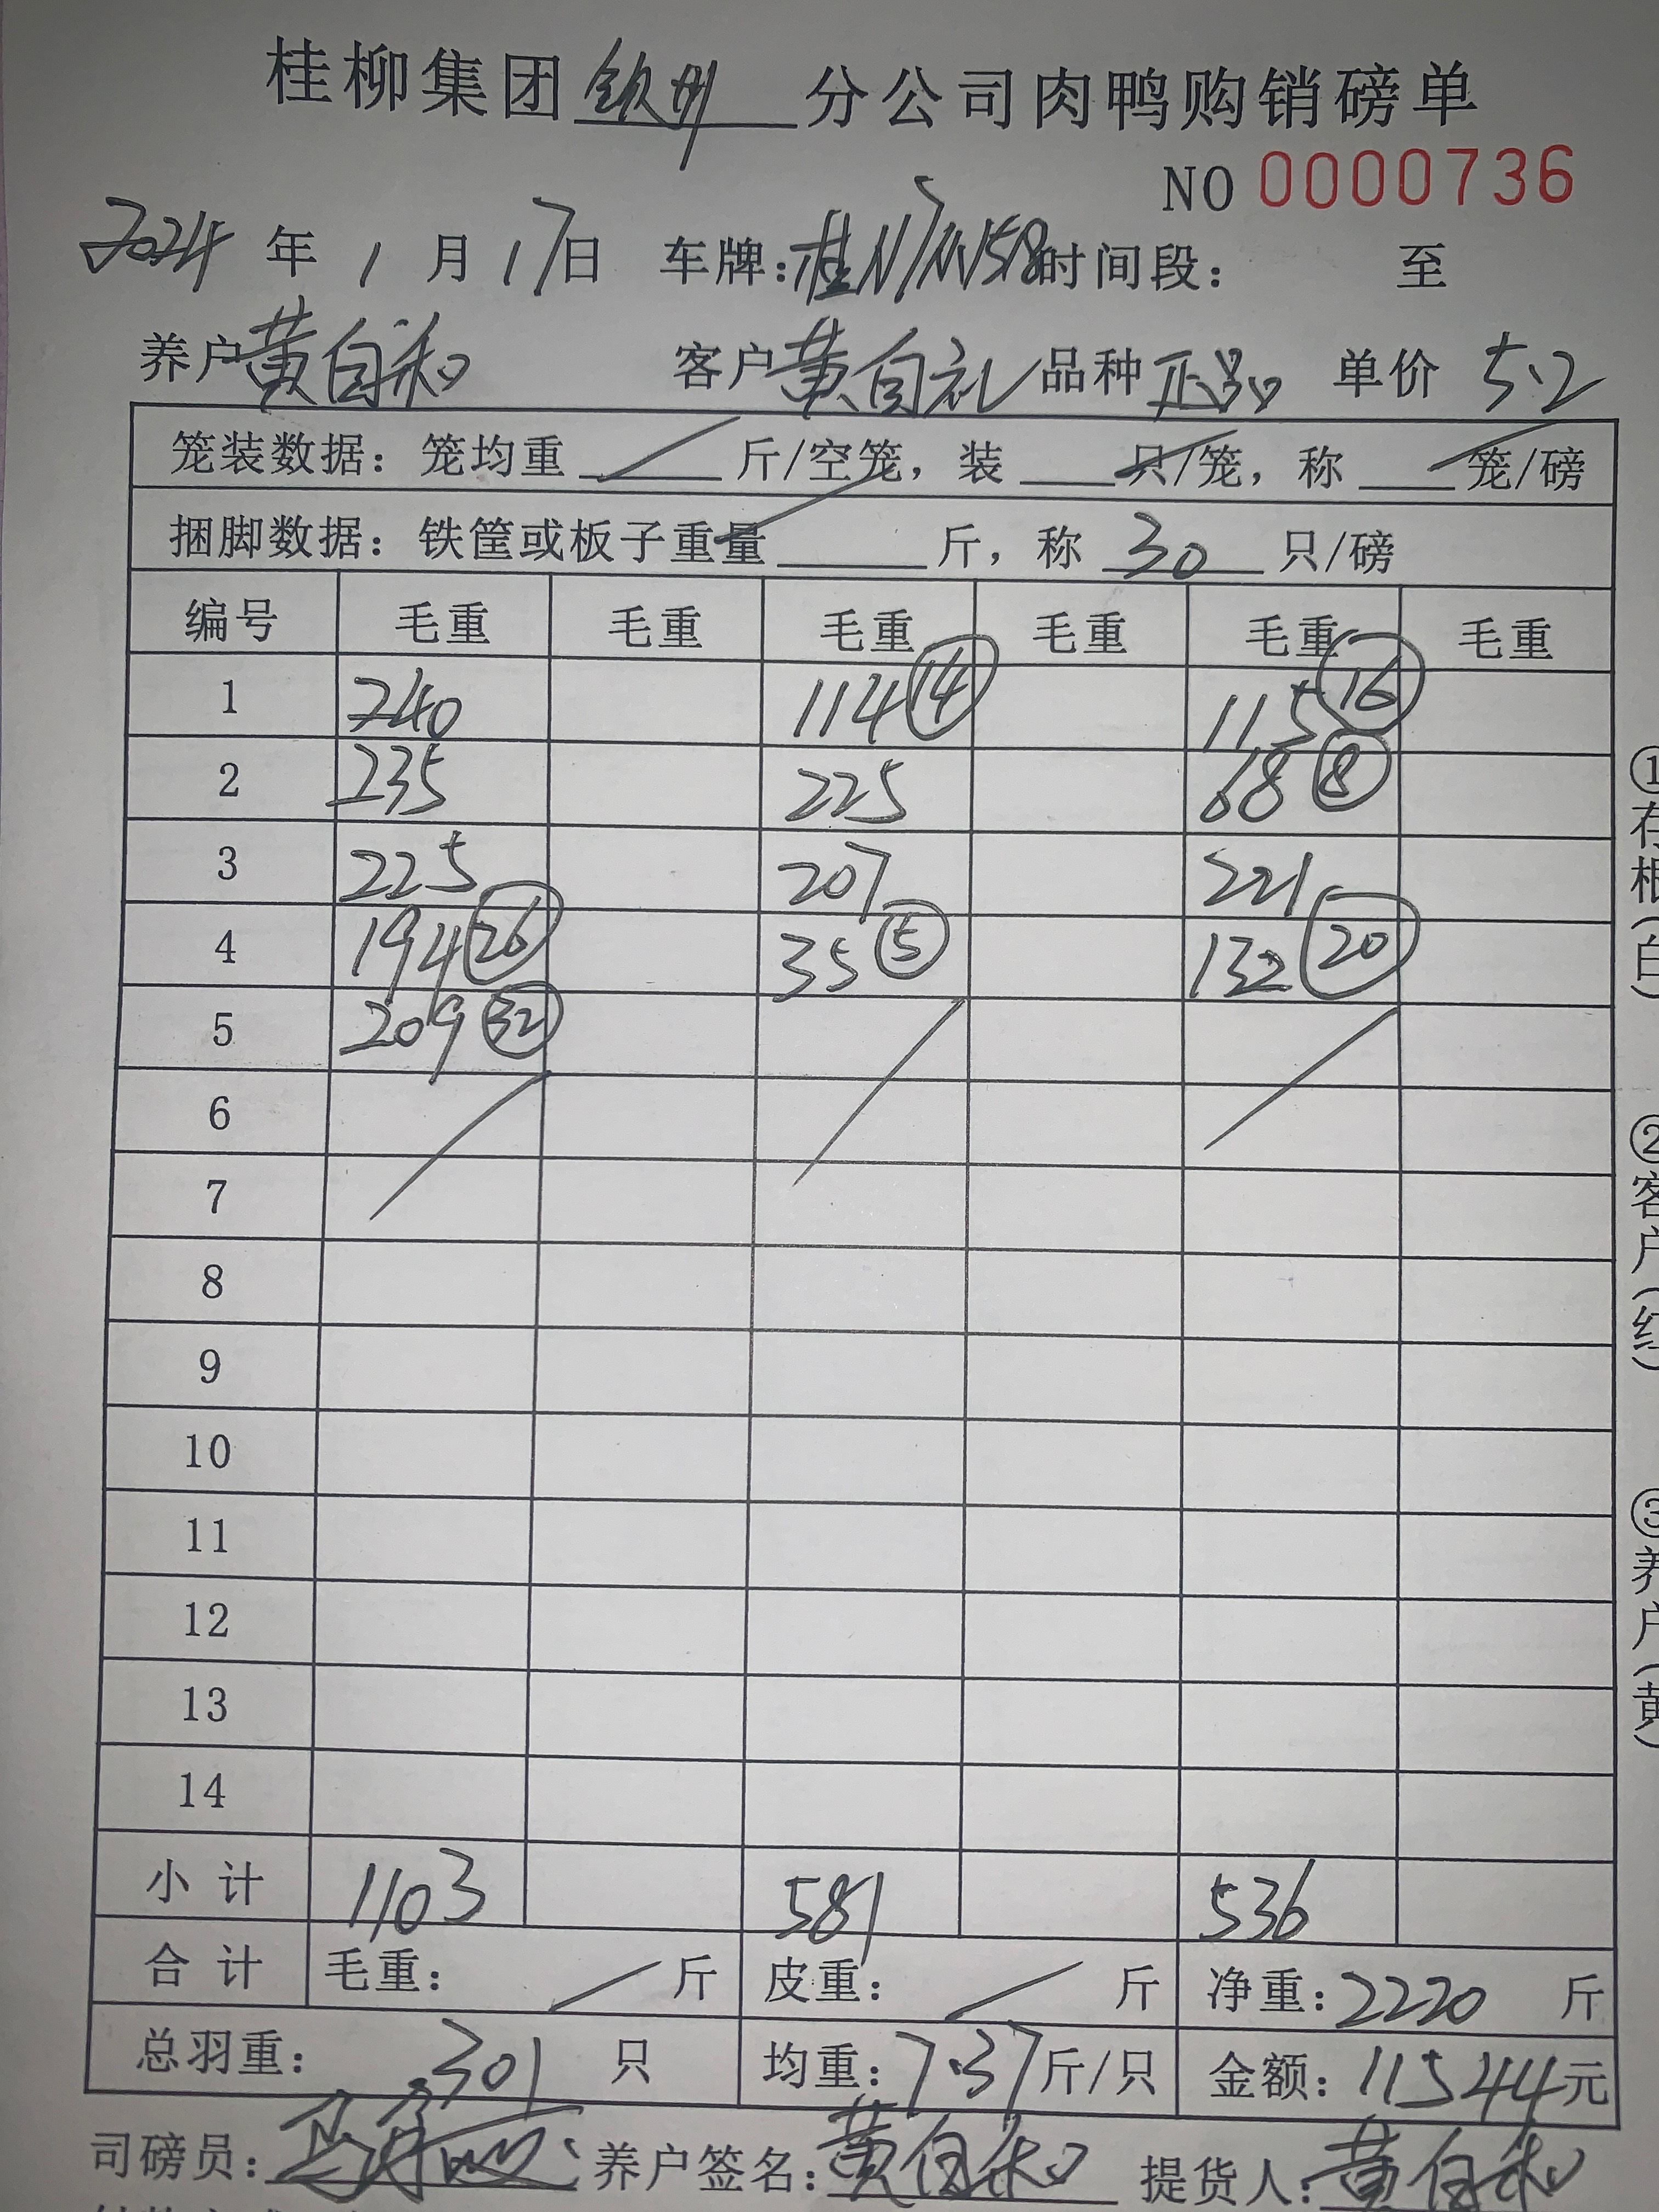 桂柳集团钦州分公司肉鸭购销磅单
NO 0000736
2024年1月17日 车牌:桂N 时间段: 至
养户黄自和 客户黄自礼 品种正品 单价5.2
笼装数据:笼均重 斤/空笼,装 只/笼,称 笼/磅
捆脚数据:铁筐或板子重量 斤,称30只/磅
编号 毛重 毛重 毛重 毛重 毛重 毛重
1 240 114 14 115 16
2 235 225 68 8
3 225 207 221
4 194 26 35 5 132 20
5 209 32
6
7
8
9
10
11
12
13
14
小计 1103 581 536
合计 毛重: 斤 皮重: 斤 净重:2220斤
总羽重: 301只 均重:7.37斤/只 金额:11544元
司磅员: 养户签名:黄自和 提货人:黄自和
①存根(白)
②客户(红)
③养户(黄)